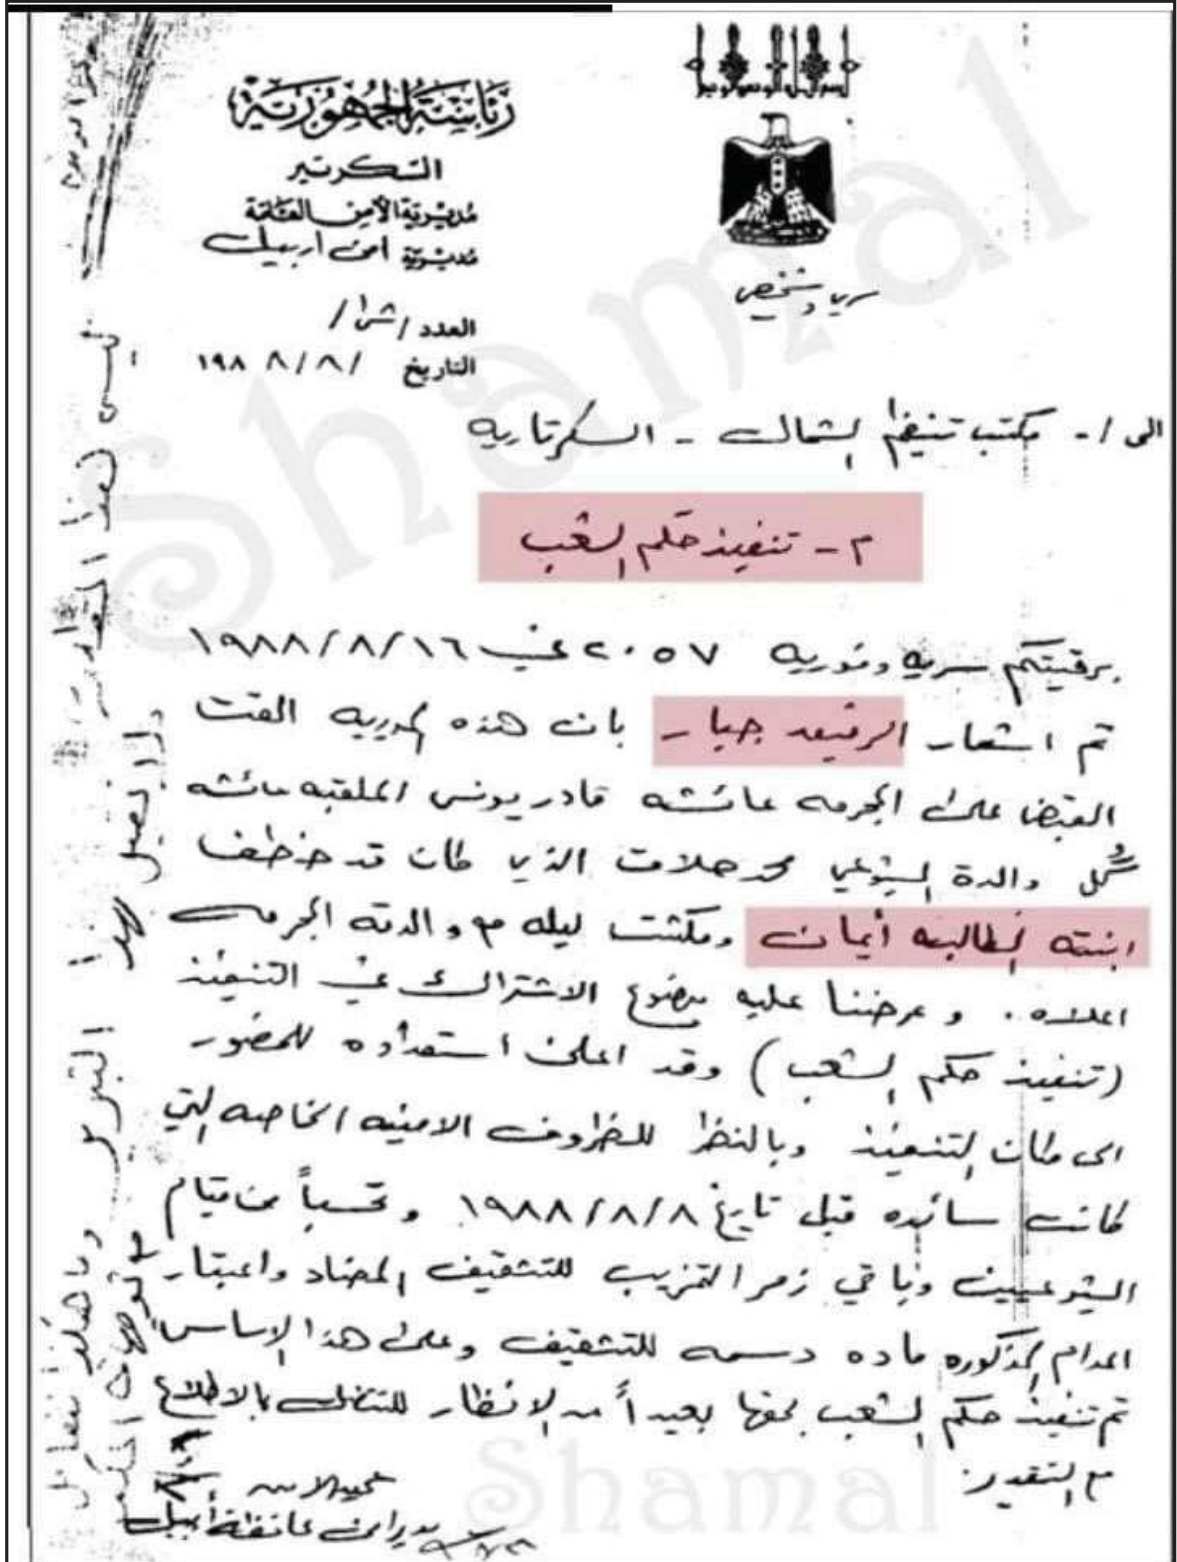 رئاسة الجمهورية
السكرتير
مديرية الأمن العامة
مديرية امن اربيل
العدد / ش١ /
التاريخ / ٨ / ١٩٨٨
سري وشخصي
الى / - مكتب تنظيم الشمال - السكرتاريه
م - تنفيذ حكم الشعب
برقيتكم سريه وفوريه ٢٠٥٧ في ١٩٨٨/٨/١٦
تم اشعار الرفيق جبار - بان هذه المديريه القت
القبض على المجرمه عائشه قادر يونس الملقبه عائشه
گول والدة الشيوعي محمد حلاق الذي كان قد خطف
ابنته الطالبه أيمان ومكثت ليله مع والدته المجرمه
اعلاه . وعرضنا عليه موضوع الاشتراك في التنفيذ
(تنفيذ حكم الشعب) وقد اعلن استعداده للحضور
الى مكان التنفيذ وبالنظر للظروف الامنيه الخاصه التي
كانت سائده قبل تاريخ ١٩٨٨/٨/٨ وتحسباً من قيام
الشيوعيين وباقي زمر التخريب للتثقيف المضاد واعتبار
اعدام المذكوره ماده دسمه للتثقيف وعلى هذا الاساس
تم تنفيذ حكم الشعب بحقها بعيداً عن الانظار للتفضل بالاطلاع
مع التقدير.
مدير امن محافظة أربيل
Shamal
Shamal